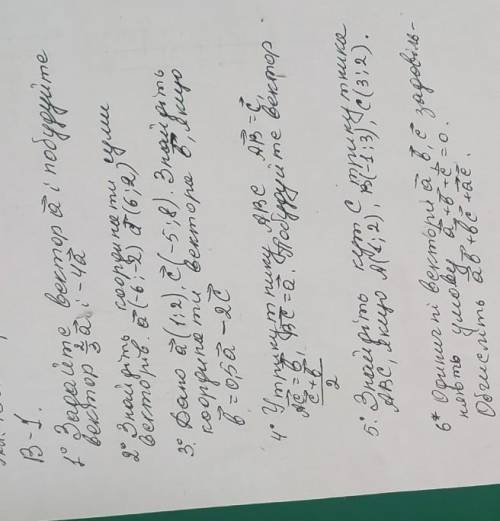 В-1.
1° Задайте вектор a⃗ і побудуйте
вектор 2/3 a⃗ ; -4a⃗
2° Знайдіть координати суми
векторів. a⃗(-6;-2) a⃗(6;2)
3° Дано a⃗(1;2), c⃗(-5;8). Знайдіть
координати вектора b⃗, якщо
b⃗ = 0,5a⃗ - 2c⃗
4° У трикутнику ABC AB⃗ = c⃗,
AC⃗ = b⃗, BC⃗ = a⃗. Побудуйте вектор
c⃗ + b⃗ / 2
5° Знайдіть кут C трикутника
ABC, якщо A(4;2), B(-1;3), C(3;2).
6* Одиничні вектори a⃗, b⃗, c⃗ задовіль-
няють умову a⃗ + b⃗ + c⃗ = 0.
Обчисліть a⃗b⃗ + b⃗c⃗ + a⃗c⃗.